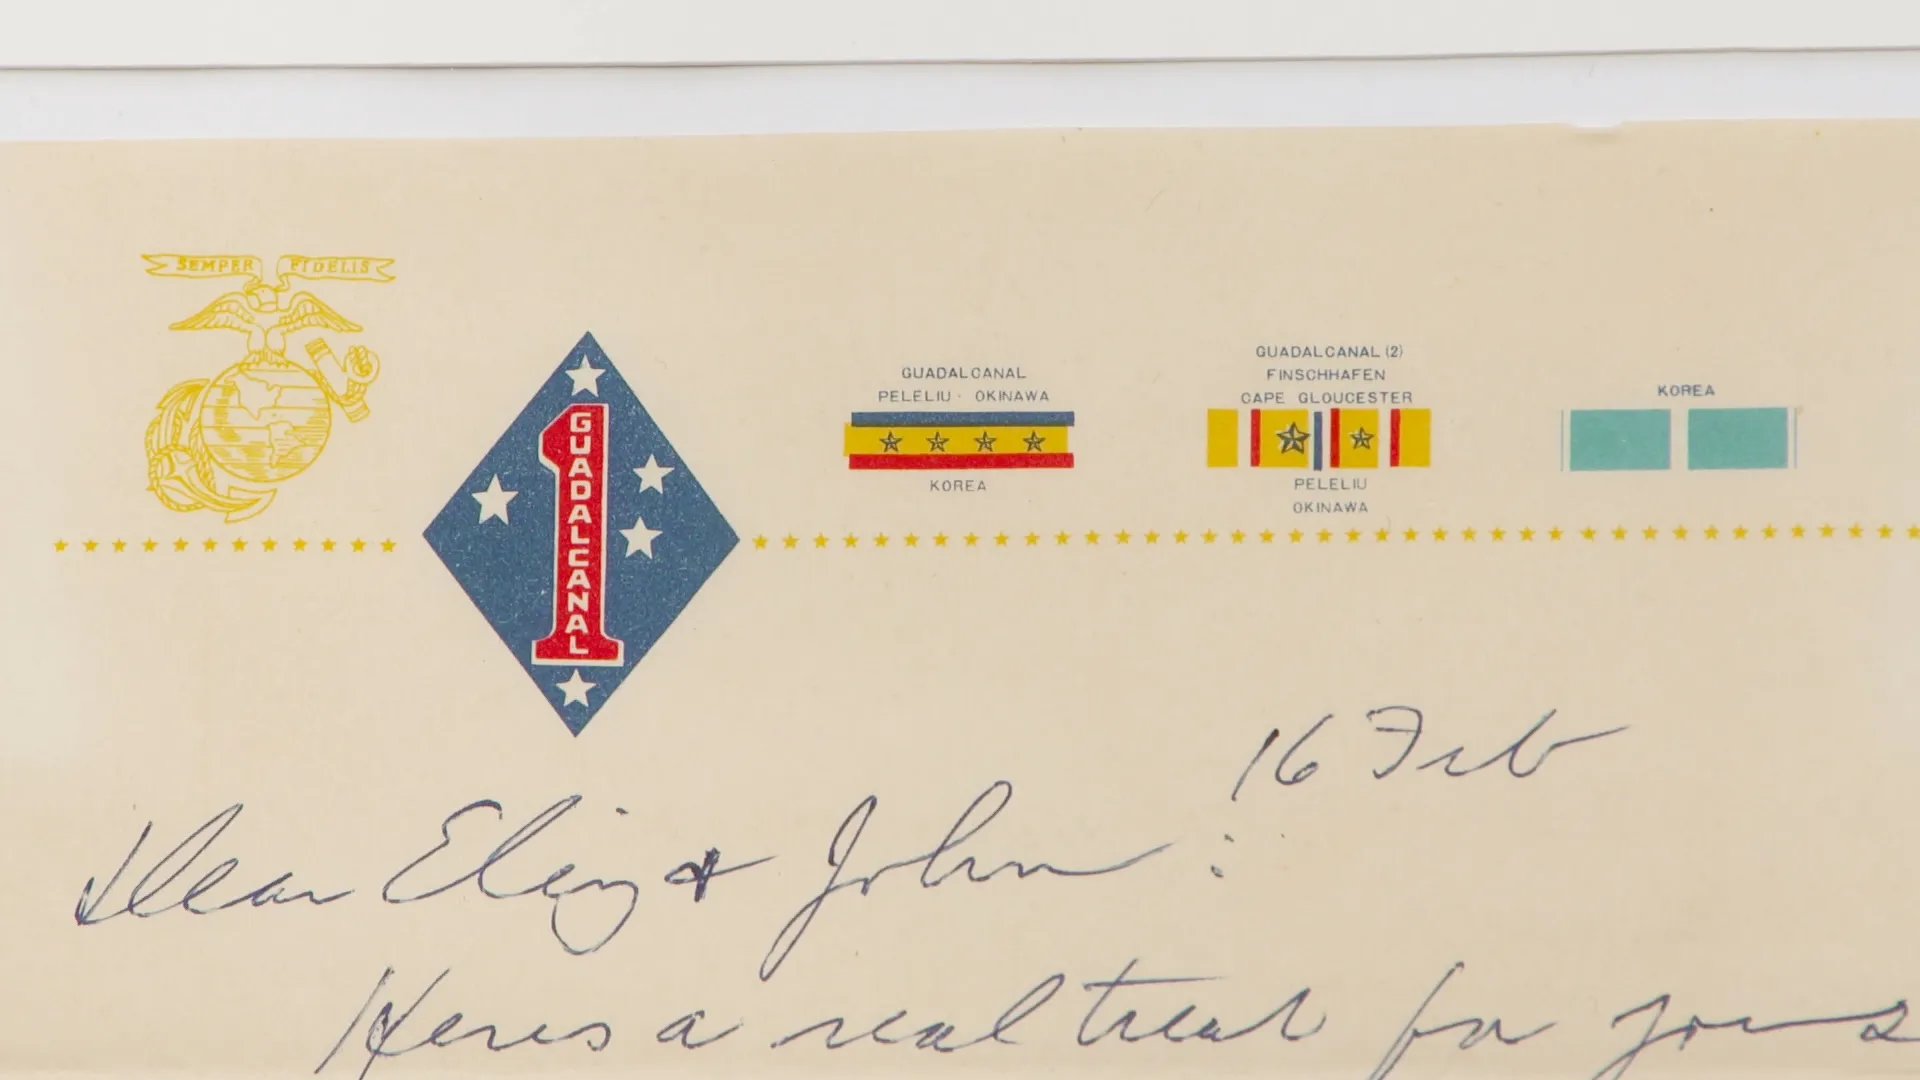 SEMPER FIDELIS
GUADALCANAL
GUADALCANAL
PELELIU · OKINAWA
KOREA
GUADALCANAL (2)
FINSCHHAFEN
CAPE GLOUCESTER
PELELIU
OKINAWA
KOREA
16 Feb
Dear Eliz & John:
Heres a real treat for